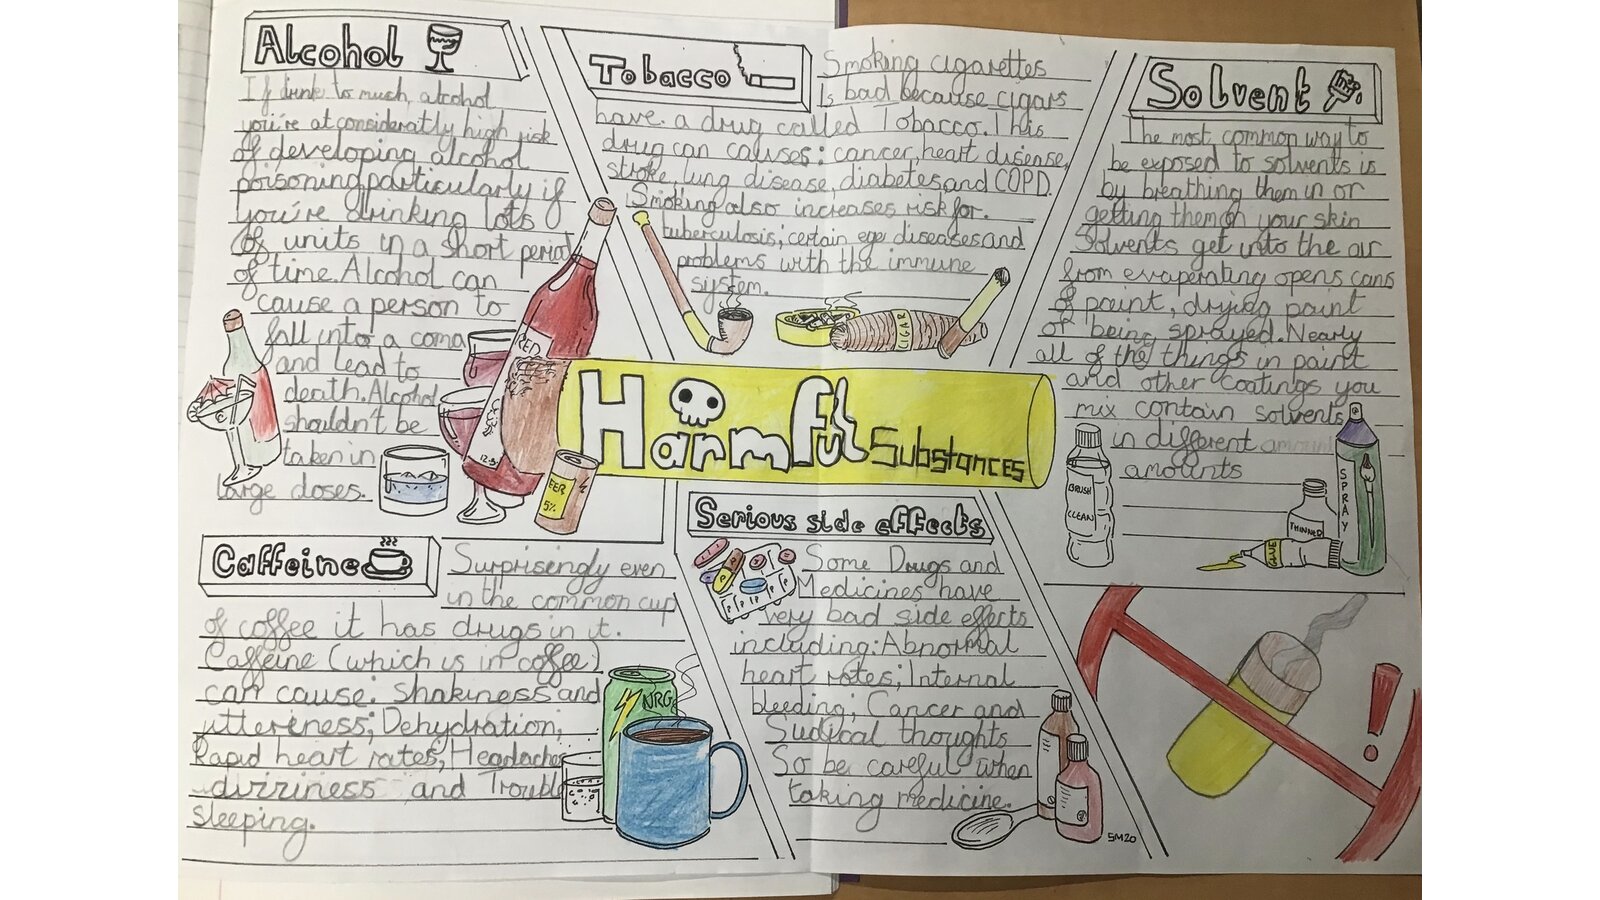 Alcohol
If drink to much, alcohol
you're at consideratly high risk
of developing alcohol
poisoning, particularly if
you're drinking lots
of units in a short period
of time. Alcohol can
cause a person to
fall into a coma
and lead to
death. Alcohol
shouldn't be
taken in
large doses.
RED
12.5
EER
5%
Tobacco
Smoking cigarettes
is bad because cigars
have a drug called Tobacco. This
drug can causes: cancer, heart disease,
stroke, lung disease, diabetes, and COPD.
Smoking also increases risk for.
tuberculosis; certain eye diseases and
problems with the immune
system.
CIGAR
Solvent
The most common way to
be exposed to solvents is
by breathing them in or
getting them on your skin
Solvents get into the air
from evaperating opens cans
of paint, drying paint
or being sprayed. Nearly
all of the things in paint
and other coatings you
mix contain solvents
in different
amounts
BRUSH
CLEAN
THINNER
GLUE
SPRAY
Harmful Substances
Caffeine
Surprisingly even
in the common cup
of coffee it has drugs in it.
Caffeine (which is in coffee)
can cause: Shakiness and
jitteriness; Dehydration;
Rapid heart rates; Headaches
dizziness and Trouble
sleeping.
NRG
Serious side effects
Some Drugs and
Medicines have
very bad side effects
including: Abnormal
heart rates; Internal
bleeding; Cancer and
Sudical thoughts
So be careful when
taking medicine.
SM20